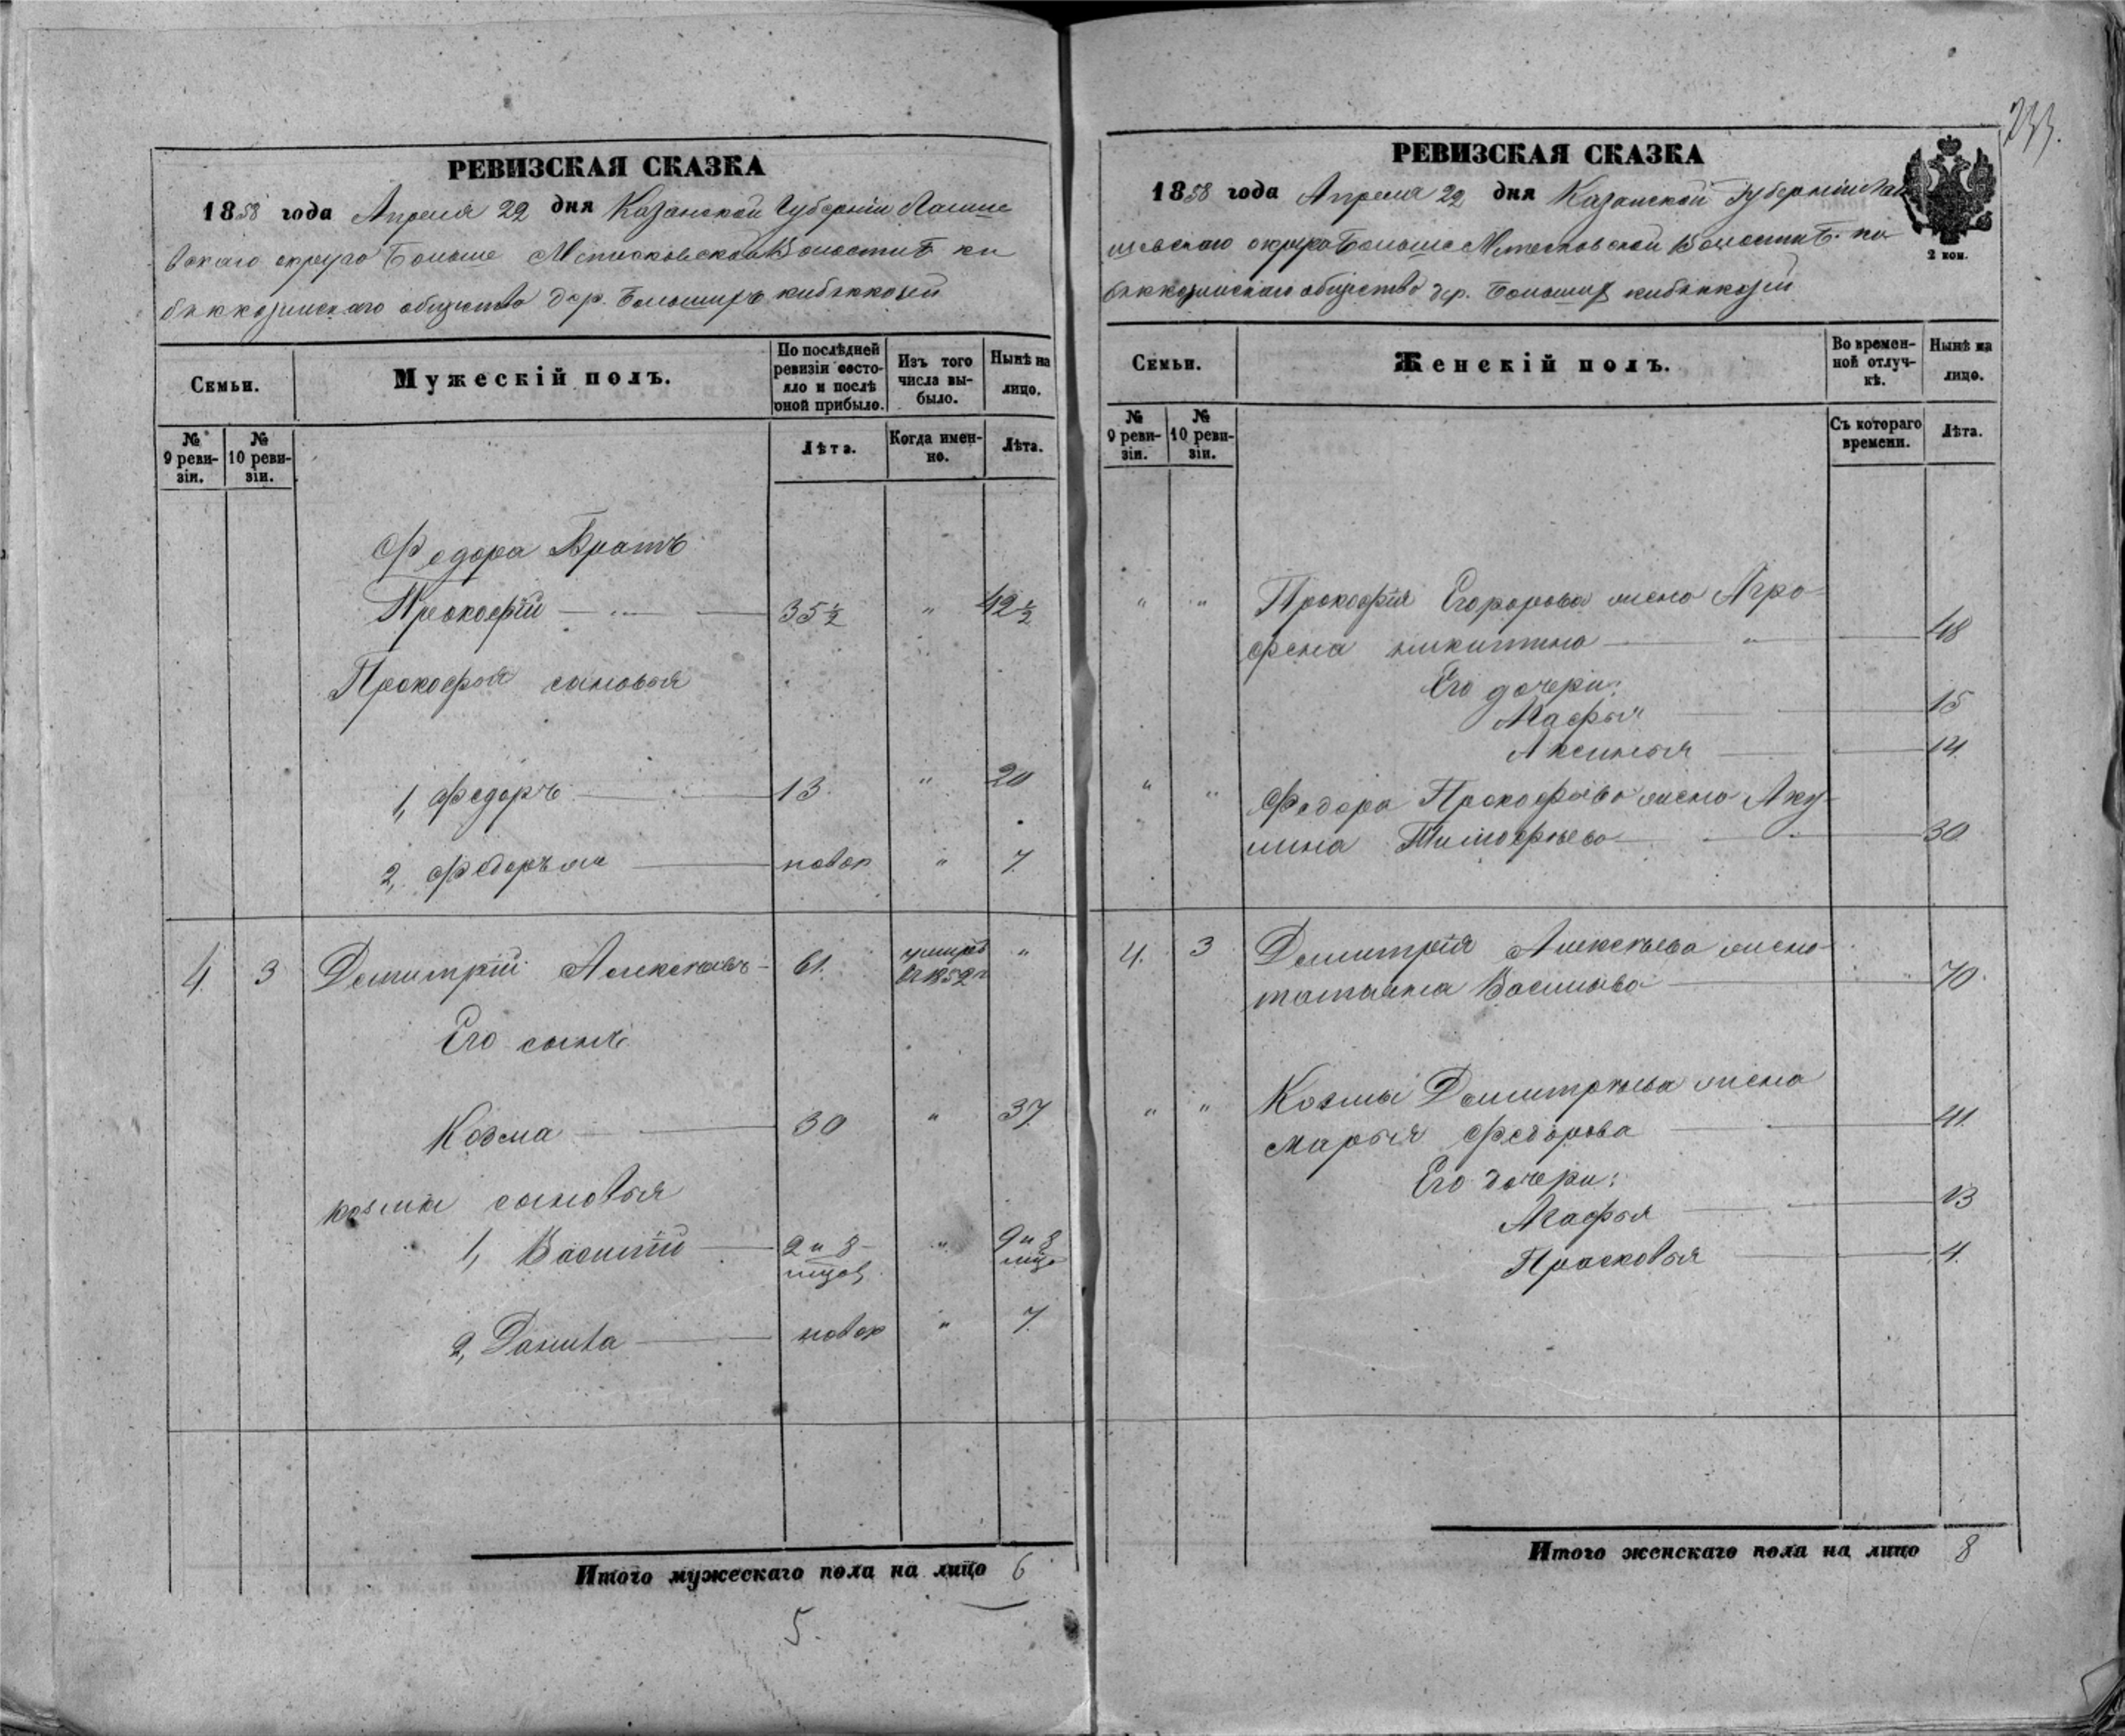 233.
РЕВИЗСКАЯ СКАЗКА
1858 года Апреля 22 дня Казанской Губернiи Лаише
вскаго округа Больше Метесковской Волости Б ки
бяккозинскаго общества дер. Большихъ кибяккозей
Семьи.
Мужескiй полъ.
По послѣдней
ревизiи состо-
яло и послѣ
оной прибыло.
Изъ того
числа вы-
было.
Нынѣ на
лицо.
№ 9 реви-
зiи.
№ 10 реви-
зiи.
Лѣта.
Когда имен-
но.
Лѣта.
Федора Братъ
Прокофiй — " — 35½ " 42½
Прокофья сыновья
1, Федоръ — 13. " 20
2, Федоръ же — новор " 7.
4. 3 Дмитрiй Алексѣевъ - 61. умеръ " 
въ 1852 г
Его сынъ
Козма — 30 " 37.
козмы сыновья
1, Василiй — 2 и 8 - " 9 и 8
мцов мцо
2, Данила — новор " 7.
Итого мужескаго пола на лицо 6
5.
РЕВИЗСКАЯ СКАЗКА
1858 года Апреля 22 дня Казанской Губернiи Лаи
шевскаго округа Больше Метесковской Волости Б. ки
бяккозинскаго общества дер. Большихъ кибяккозей
2 коп.
Семьи.
Женскiй полъ.
Во времен-
ной отлуч-
кѣ.
Нынѣ на
лицо.
№ 9 реви-
зiи.
№ 10 реви-
зiи.
Съ котораго
времени.
Лѣта.
" " Прокофiя Егоророва жена Агро-
фена никитина — " — 48
Его дочери:
Агафья — 15
Аксинья — 14.
" " Федора Прокофьева жена Аку-
лина Тимофѣева — 30
4. 3 Дмитрiя Алексѣева жена
татьяна Васильева — 70.
" " Козмы Дмитрѣева жена
марья Федорова — 41.
Его дочери:
Агафья — 13
Прасковья — 4.
Итого женскаго пола на лицо 8